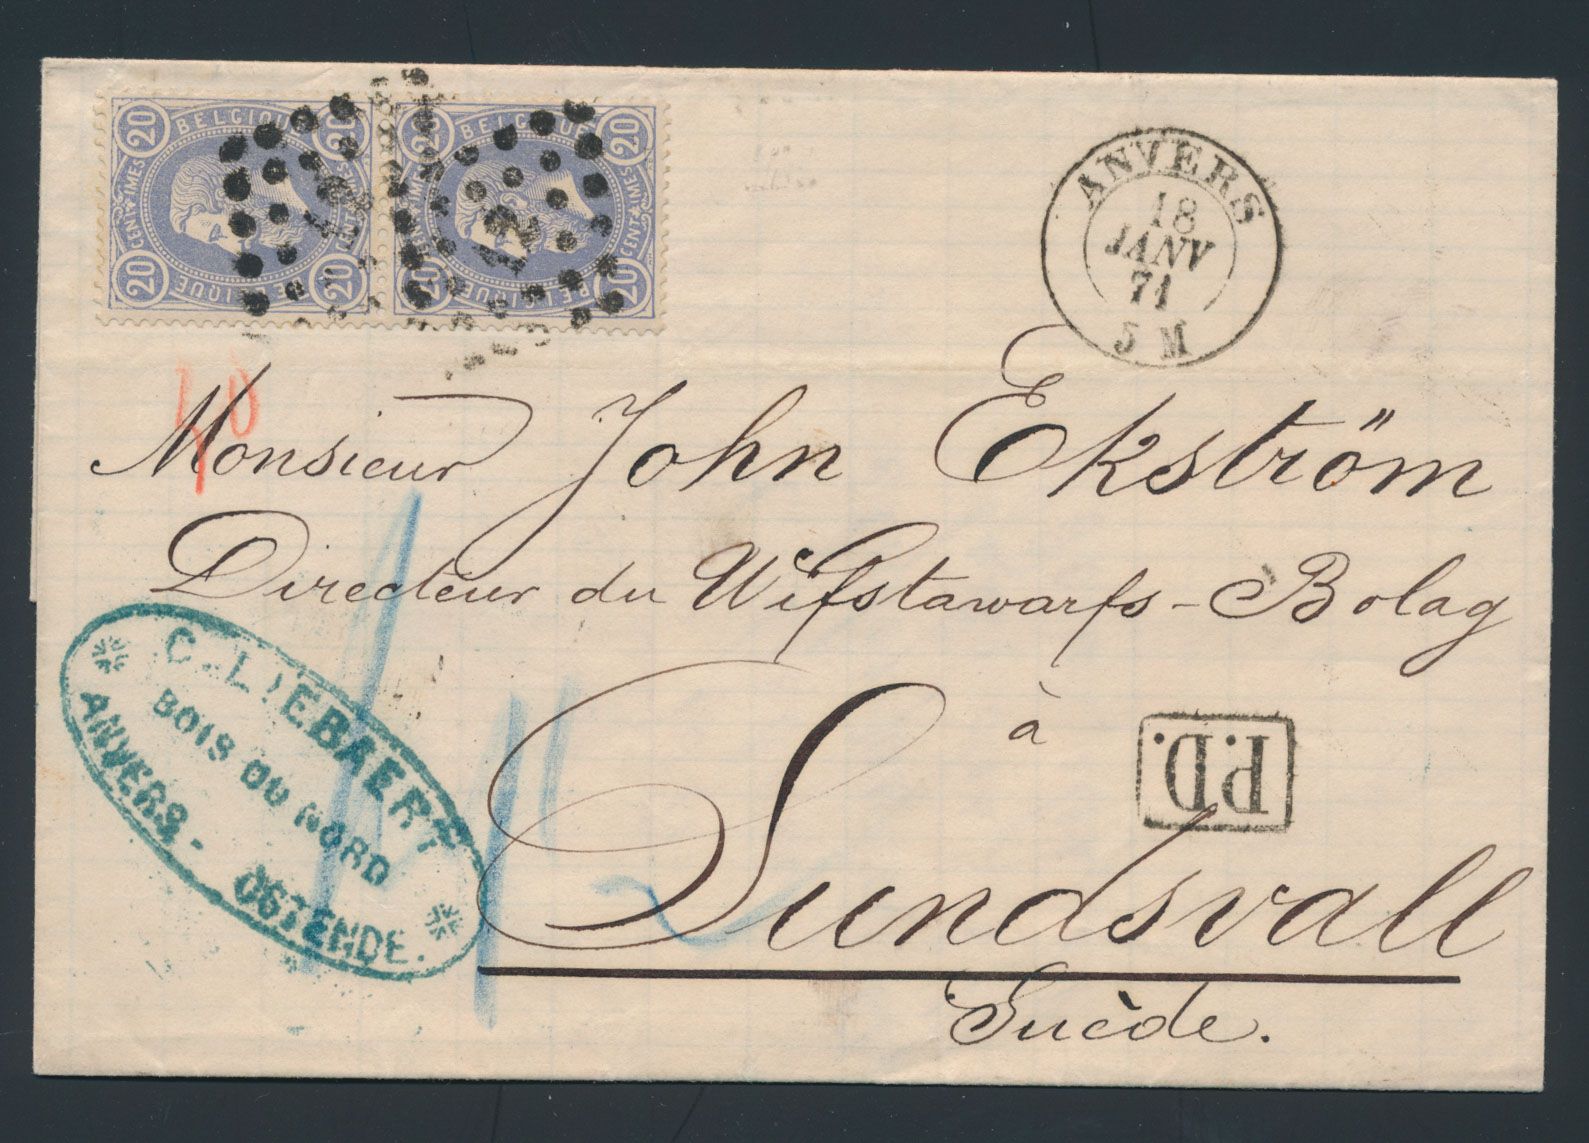 20 BELGIQUE 20
CENTIMES
20 BELGIQUE 20
20 BELGIQUE 20
CENTIMES
20 BELGIQUE 20
12
12
ANVERS
18
JANV
71
5 M
40
Monsieur John Ekström
Directeur du Wifstawarfs-Bolag
à
Sundsvall
Suède.
P.D.
C. LIEBAERT
BOIS DU NORD
ANVERS - OSTENDE.